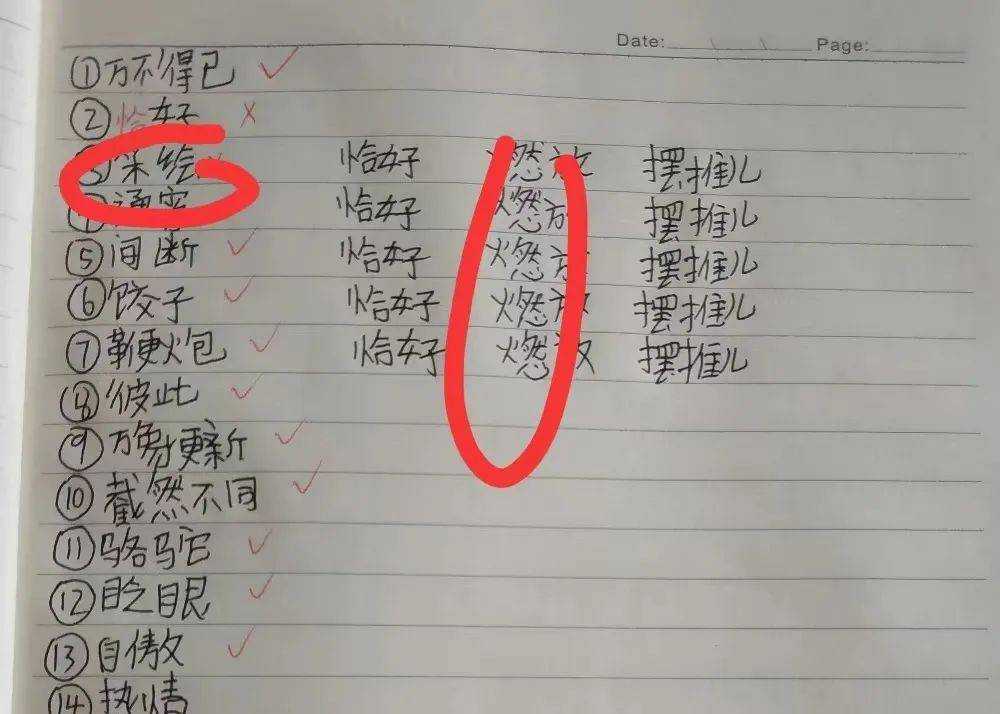 Date: Page:
①万不得已
②恰好
③ 绘 恰好 燃放 摆推儿
④通宵 恰好 燃放 摆推儿
⑤间断 恰好 燃放 摆推儿
⑥饺子 恰好 燃放 摆推儿
⑦鞭炮 恰好 燃放 摆推儿
⑧彼此
⑨万象更新
⑩截然不同
⑪骆驼
⑫眨眼
⑬自傲
⑭热情